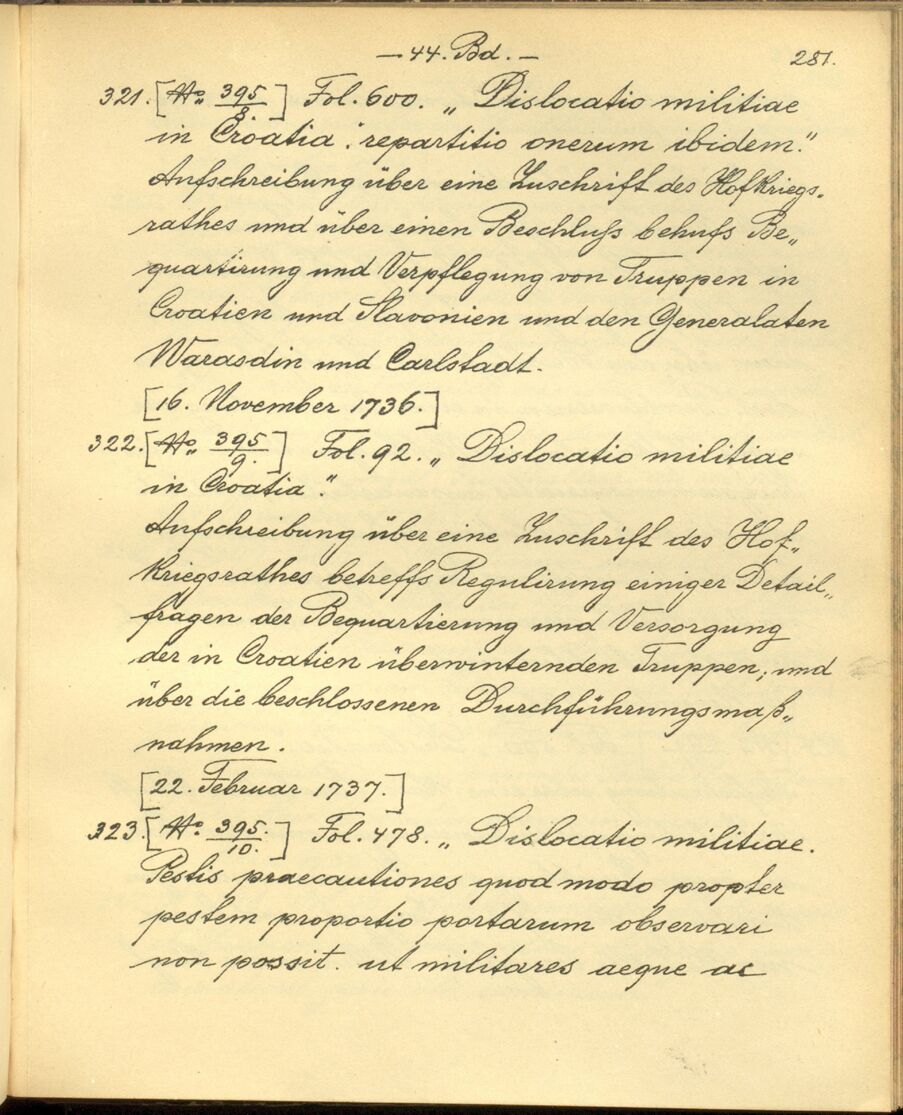 — 44. Bd. —
281.
321. [No. 395/8] Fol. 600. „Dislocatio militiae
in Croatia: repartitio onerum ibidem."
Aufschreibung über eine Zuschrift des Hofkriegs-
rathes und über einen Beschluß behufs Be„
quartirung und Verpflegung von Truppen in
Croatien und Slavonien und den Generalaten
Warasdin und Carlstadt.
[16. November 1736.]
322. [No. 395/9.] Fol. 92. „Dislocatio militiae
in Croatia."
Aufschreibung über eine Zuschrift des Hof„
kriegsrathes betreffs Regulirung einiger Detail„
fragen der Bequartierung und Versorgung
der in Croatien überwinternden Truppen, und
über die beschlossenen Durchführungsmaß„
nahmen.
[22. Februar 1737.]
323. [No. 395./10.] Fol. 478. „Dislocatio militiae.
Pestis praecautiones quod modo propter
pestem proportio portarum observari
non possit. ut militares aeque ac